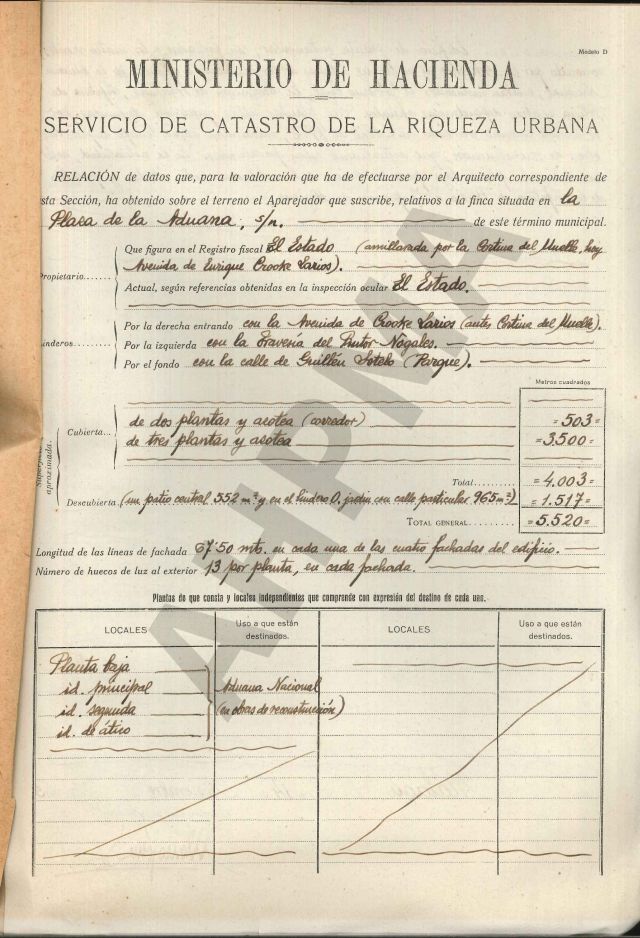 Modelo D
MINISTERIO DE HACIENDA
SERVICIO DE CATASTRO DE LA RIQUEZA URBANA
RELACIÓN de datos que, para la valoración que ha de efectuarse por el Arquitecto correspondiente de
sta Sección, ha obtenido sobre el terreno el Aparejador que suscribe, relativos a la finca situada en la
Plaza de la Aduana, s/n. de este término municipal.
Propietario...... Que figura en el Registro fiscal El Estado (amillarada por la Cortina del Muelle, hoy
Avenida de Enrique Crooke Larios).
Actual, según referencias obtenidas en la inspección ocular El Estado.
inderos...... Por la derecha entrando con la Avenida de Crooke Larios (antes Cortina del Muelle).
Por la izquierda con la Travesía del Pintor Nogales.
Por el fondo con la calle de Guillén Sotelo (Parque).
Metros cuadrados
Superficie aproximada.
Cubierta... de dos plantas y azotea (corredor) =503=
de tres plantas y azotea =3.500=
Total......... =4.003=
Descubierta (un patio central 552 m² y en el lindero O. jardín con calle particular 965 m²) =1.517=
TOTAL GENERAL....... =5.520=
Longitud de las líneas de fachada 67'50 mts. en cada una de las cuatro fachadas del edificio.
Número de huecos de luz al exterior 13 por planta, en cada fachada.
Plantas de que consta y locales independientes que comprende con expresión del destino de cada uno.
LOCALES Uso a que están destinados. LOCALES Uso a que están destinados.
Planta baja
id. principal Aduana Nacional
id. segunda (en obras de reconstrucción)
id. de ático
AHPMA